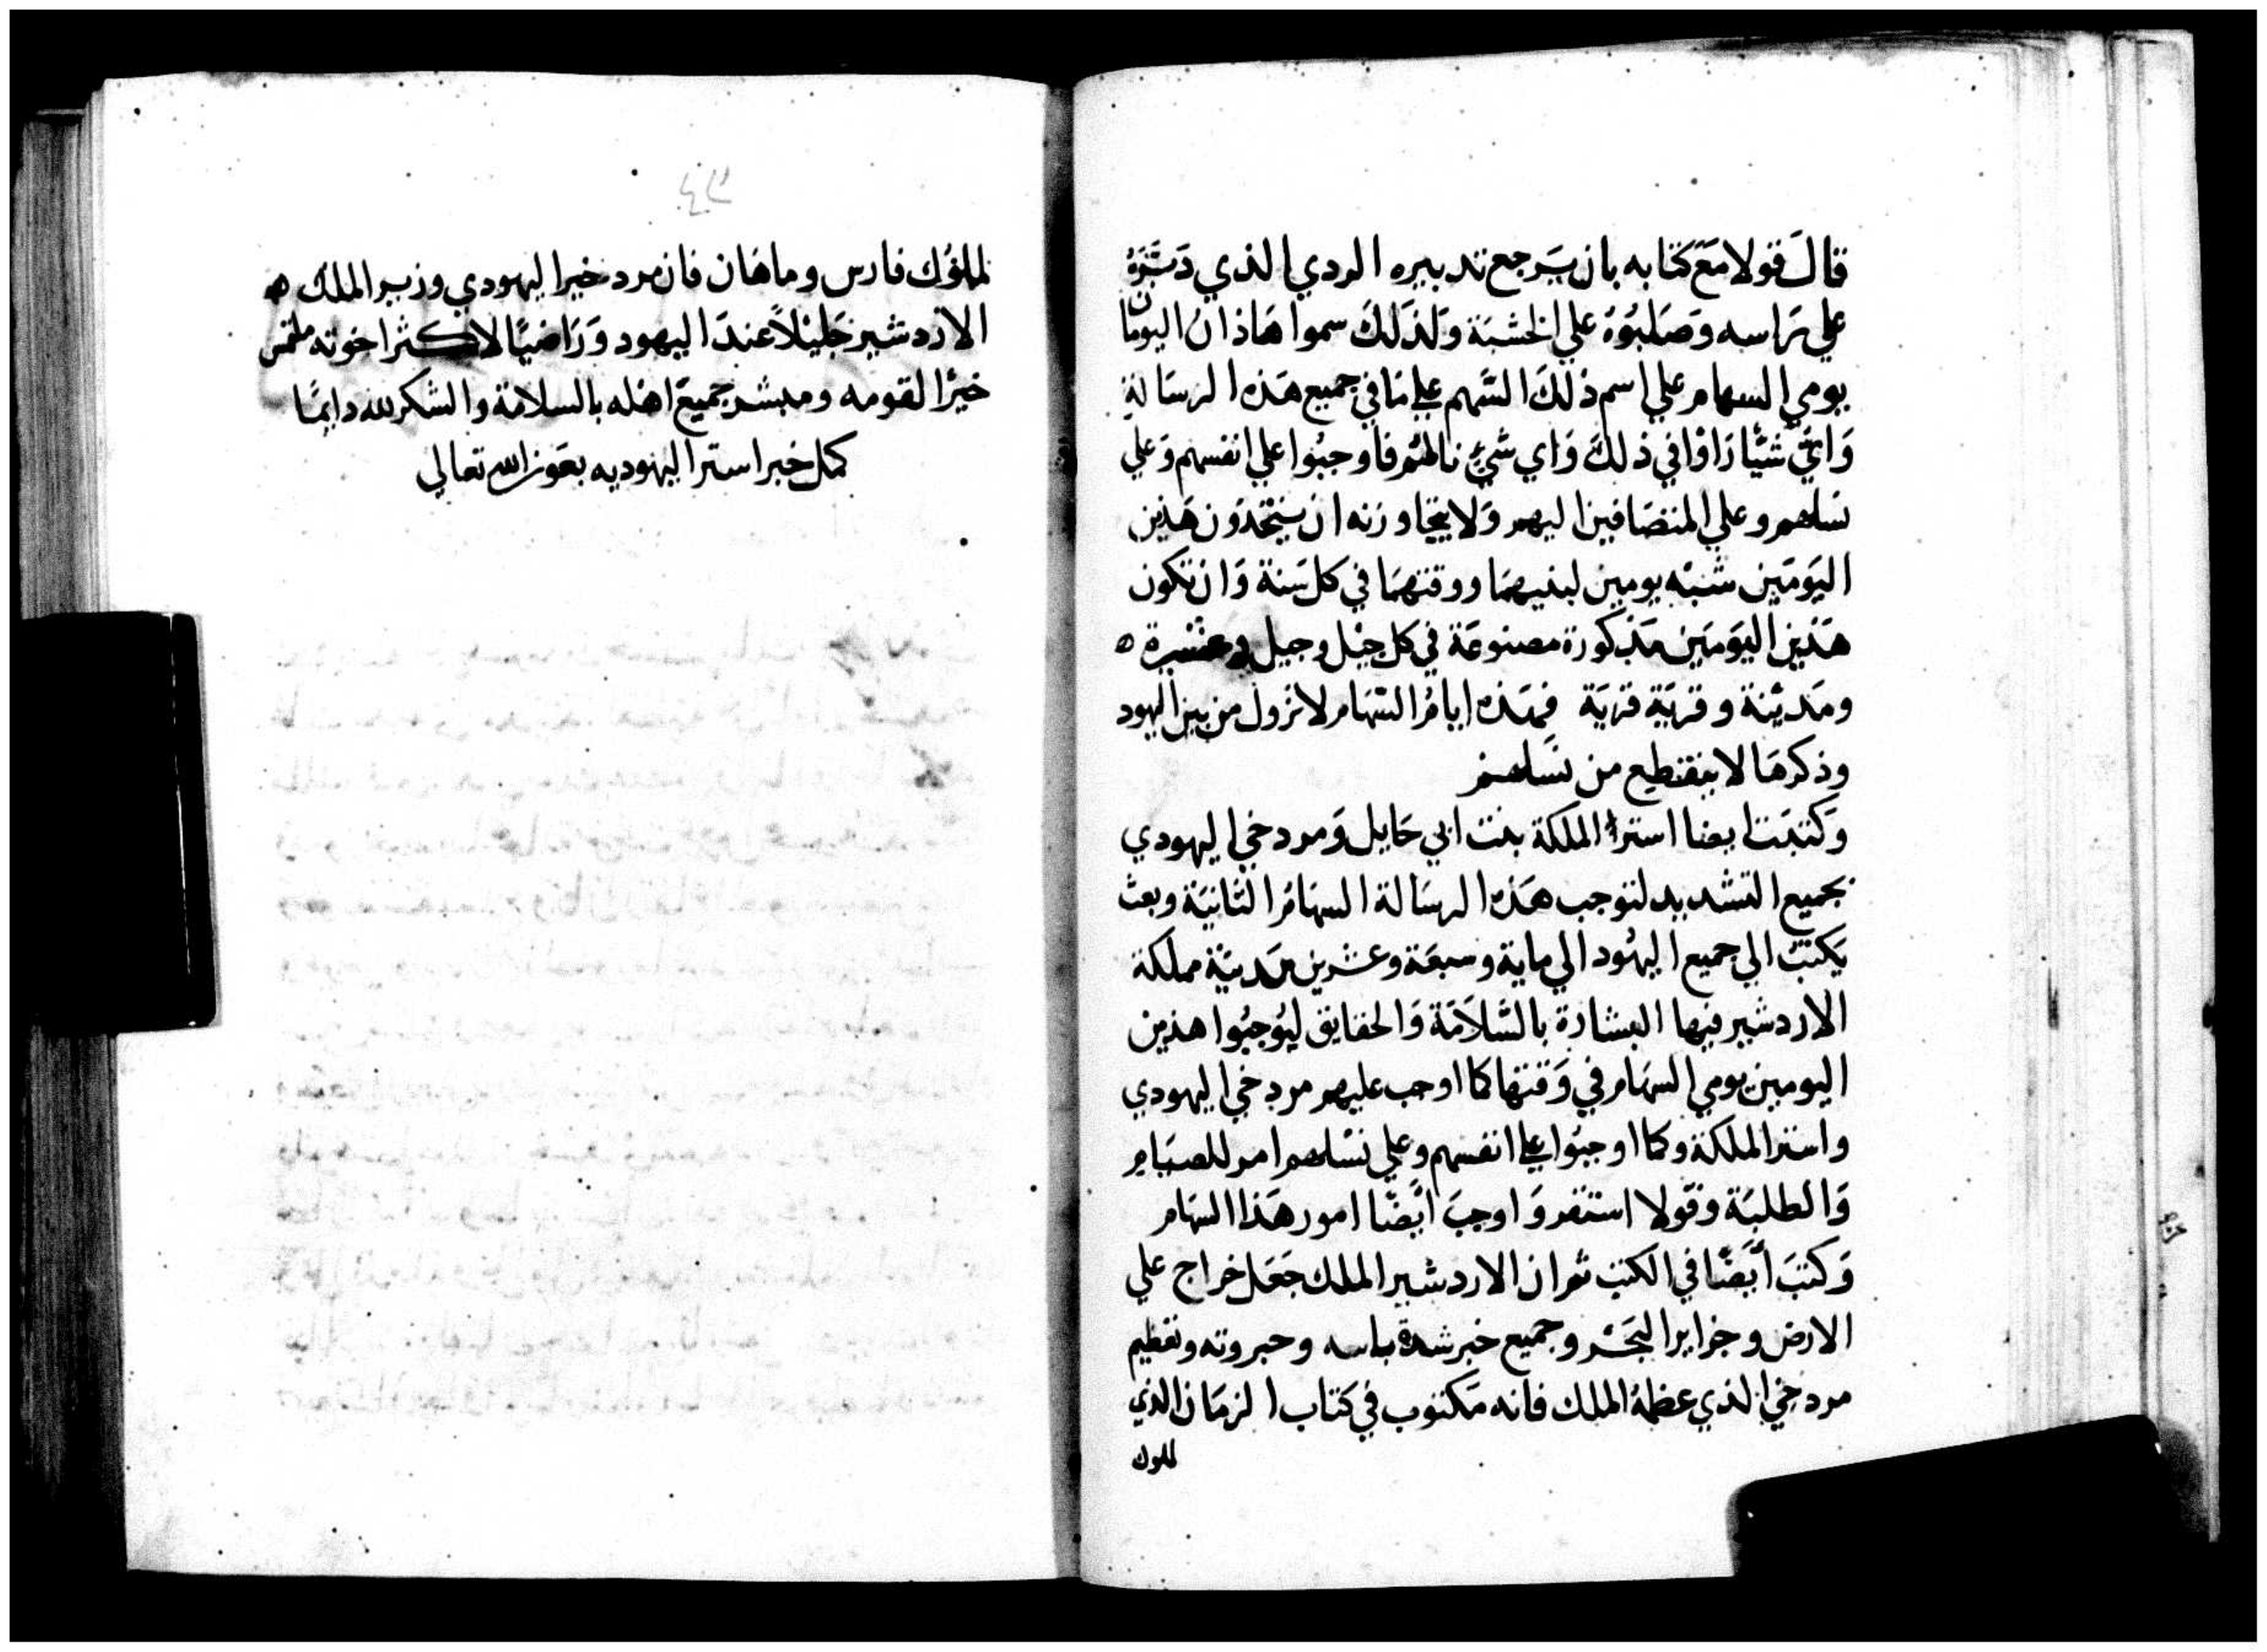 قالَ قولا مَعَ كتابه بان يَرجع تدبيره الردي الذي دَبَّرَهُ
علي رَاسه وَصَلبُوهُ علي الخشبَة وَلذَلكَ سموا هَاذان اليومان
يومي السهام علي اسم ذلكَ السَّهم علي مَا في جميع هَذه الرسَالة
وَايُّ شيًّا رَاوا في ذلكَ وَاي شيءٍ نالهُم فاوجبُوا علي انفسهم وَعلي
نسلهم وعلي المنضَافين اليهم وَلا يتجاوزنه ان يتخذون هَذين
اليَومَين شبْه يومين لبنيهمَا ووقتهمَا في كل سَنة وَان تكون
هَذين اليَومَين مَذكورة مصنوعَة في كل جيْل وجيل وعشيرة ه
ومَديْنة وقريَة قريَة فهَذه ايامُ السّهَام لا تزول من بين اليهود
وذكرهَا لا ينقطع من نسَلهم
وَكتبَت ايضا استرا الملكة بنت ابي حَايل وَمردخي اليهودي
بجميع التشديد لتوجب هَذه الرسَالة السهَامُ الثانيَة وبعث
يَكتبُ الي جميع اليهُود الي ماية وسبعَة وعشرين مَدينَة مملكة
الاردشير فيها البشارَة بالسَّلاَمَة وَالحقايق ليُوجبُوا هذين
اليومين يومي السهَام في وَقتها كما اوجب عليهم مردخي اليهودي
واستر الملكة وكما اوجبُوا علي انفسهم وعلي نسْلهم امر للصيَام
وَالطلبَة وقولا استقر وَاوجبَ ايَضًا امور هَذا السهَام
وَكتبَ أيَضًا في الكتب ثم ان الاردشير الملك جَعَل خراج علي
الارض وجزاير البَحْر وجميع خبر شدة باسه وجبروته وتعظيم
مردخي الذي عظمهُ الملك فانه مَكتوب في كتاب الزمَان الذي
لملوك
لملوُك فارس وماهَان فان مردخيرا اليهودي وزير الملك ه
الاردشير جَليْلاً عندَ اليهود وَرَاضيًا لاكثر اخوته ملتمس
خيرًا لقومه ومبشر جميعَ اهْله بالسلامَة والشكر لله دايمًا
كمل خبر استر اليهوديه بعَون الله تعالي